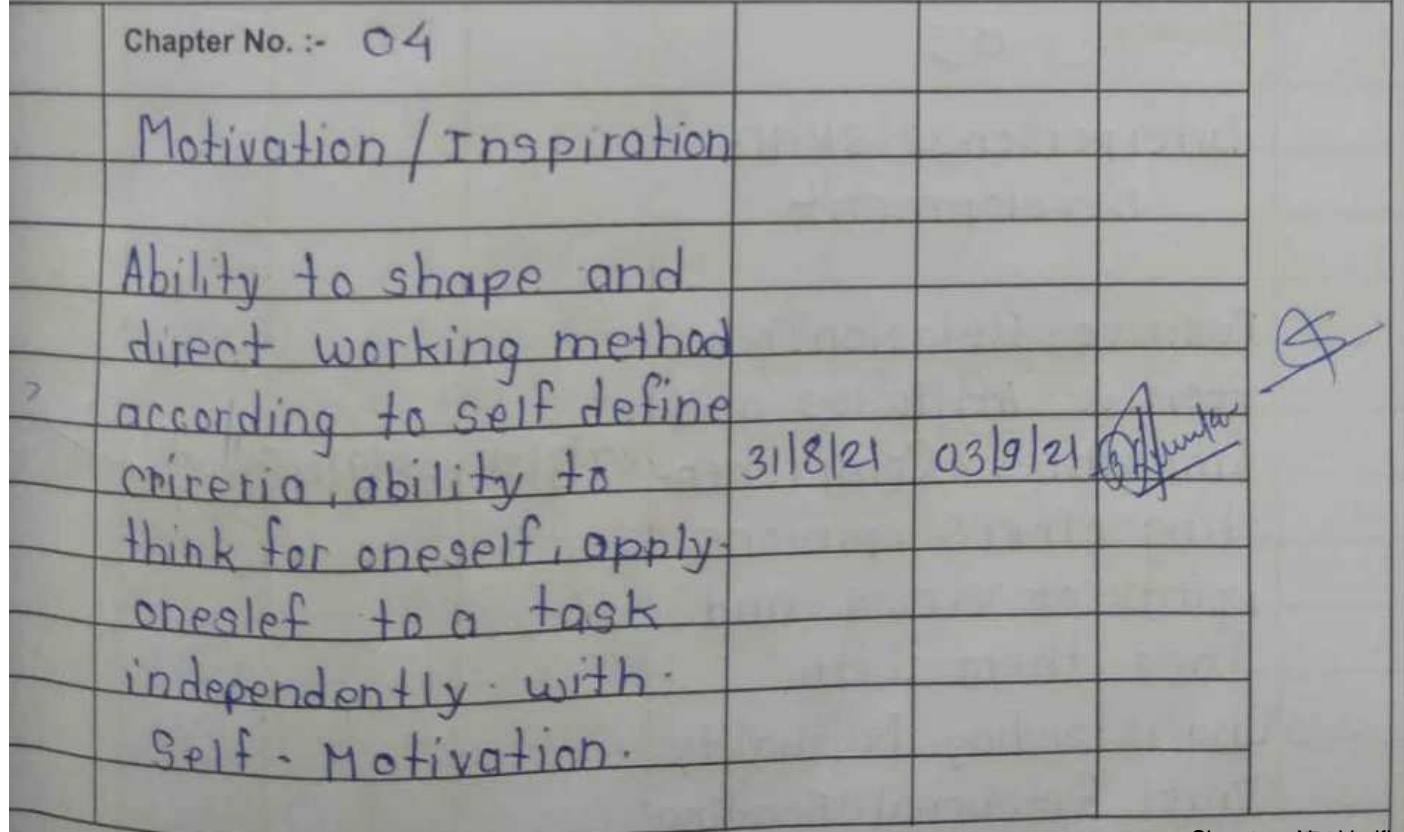 Chapter No. :- 04
Motivation / Inspiration
Ability to shape and
direct working method
according to self define
crireria, ability to
think for oneself, apply
oneslef to a task
31/8/21 03/9/21
independently with.
Self - Motivation.